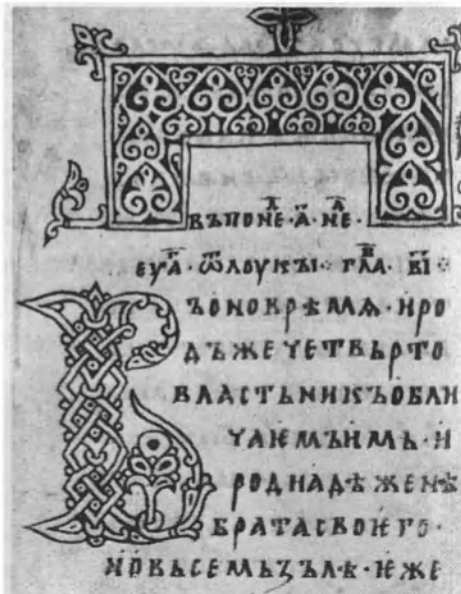 ВЪПОНЕⷣ҇·А҃·НЕⷣ҇·
ЕУⷢ҇А·ѾЛОУКꙐ·ГЛАⷡ҇·В҃І
ВЪОНОВРѢМѦ·ИРО
ДЪЖЕЧЕТВЬРТО
ВЛАСТЬНИКЪОБЛИ
ЧАѤМЪИМЬ·И
РОДИАДѢЖЕНѢ
БРАТАСВОѤГО·
ИОВЬСЕМЬЗЪЛѢ·ѤЖЕ